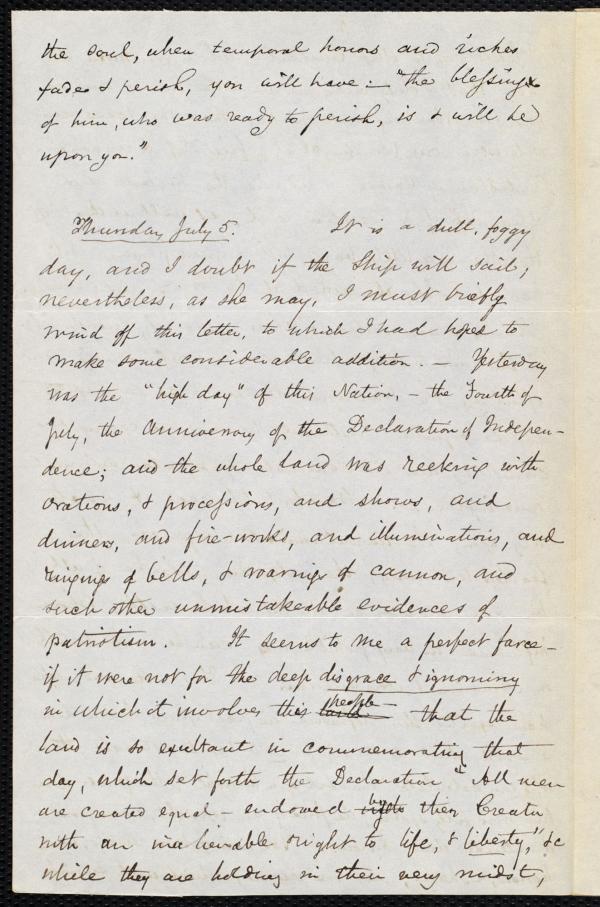 the soul, when temporal honors and riches
fade & perish, you will have :— "the blessing
of him, who was ready to perish, is & will be
upon you."
Thursday, July 5. It is a dull, foggy
day, and I doubt if the Ship will sail;
nevertheless, as she may, I must briefly
wind off this letter, to which I had hoped to
make some considerable addition. — Yesterday
was the "high day" of this Nation, — the Fourth of
July, the Anniversary of the Declaration of Indepen-
dence; and the whole land was reeking with
orations, & processions, and shows, and
dinners, and fire-works, and illuminations, and
ringings of bells, & roarings of cannon, and
such other unmistakeable evidences of
patriotism. It seems to me a perfect farce —
if it were not for the deep disgrace & ignominy
in which it involves this people — that the
land is so exultant in commemorating that
day, which set forth the Declaration "All men
are created equal — endowed by their Creator
with an inalienable right to life, & liberty," &c
while they are holding in their very midst,